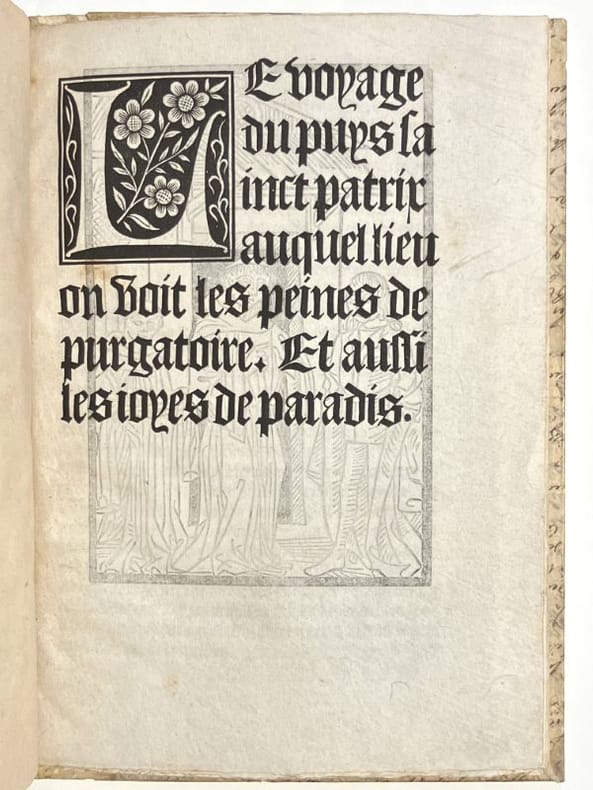 LE voyage
du puys sa
inct patrix
auquel lieu
on voit les peines de
purgatoire. Et aussi
les ioyes de paradis.